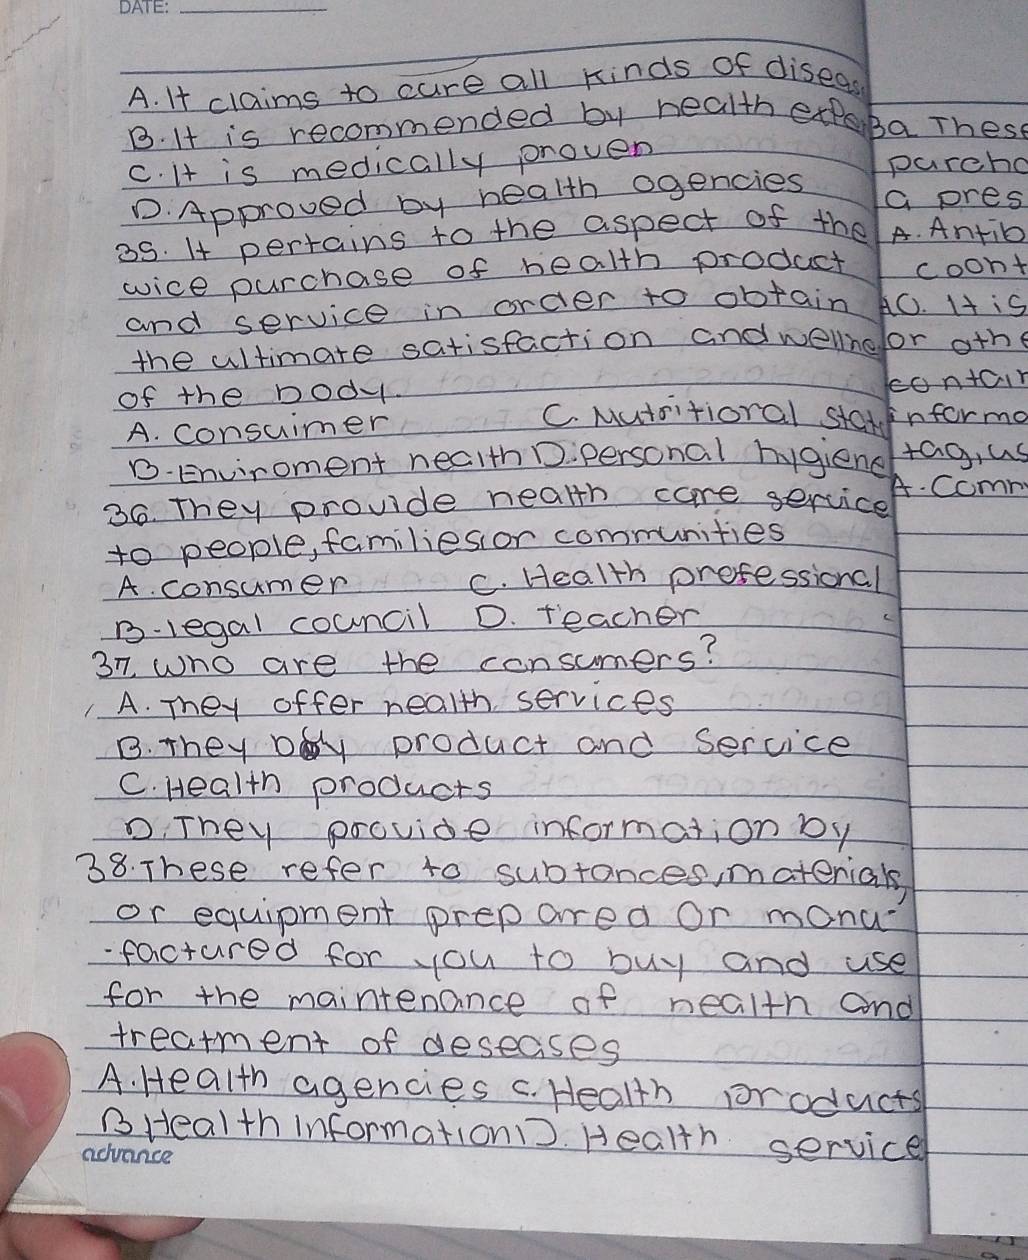 DATE:
A. It claims to cure all kinds of diseas
B. It is recommended by health expe
C. It is medically proven
D. Approved by health agencies
35. It pertains to the aspect of the
wice purchase of health product
and service in order to obtain
the ultimate satisfaction and wellne
of the body.
A. Consuimer C. Nutritional stat
B. Enviroment health D. personal hygiene
36. They provide health care service
to people, families, or communities
A. Consumer C. Health professional
B. legal council D. Teacher
37. Who are the consumers?
A. They offer health services
B. They buy product and service
C. Health products
D. They provide information by
38. These refer to subtances, materials,
or equipment prepared or manu-
-factured for you to buy and use
for the maintenance of health and
treatment of deseases
A. Health agencies C. Health products
B Health Information D. Health service
advance
These
purcha
a pres
A. Antib
coont
40. It is
or othe
contain
informa
tag, us
A. Comm